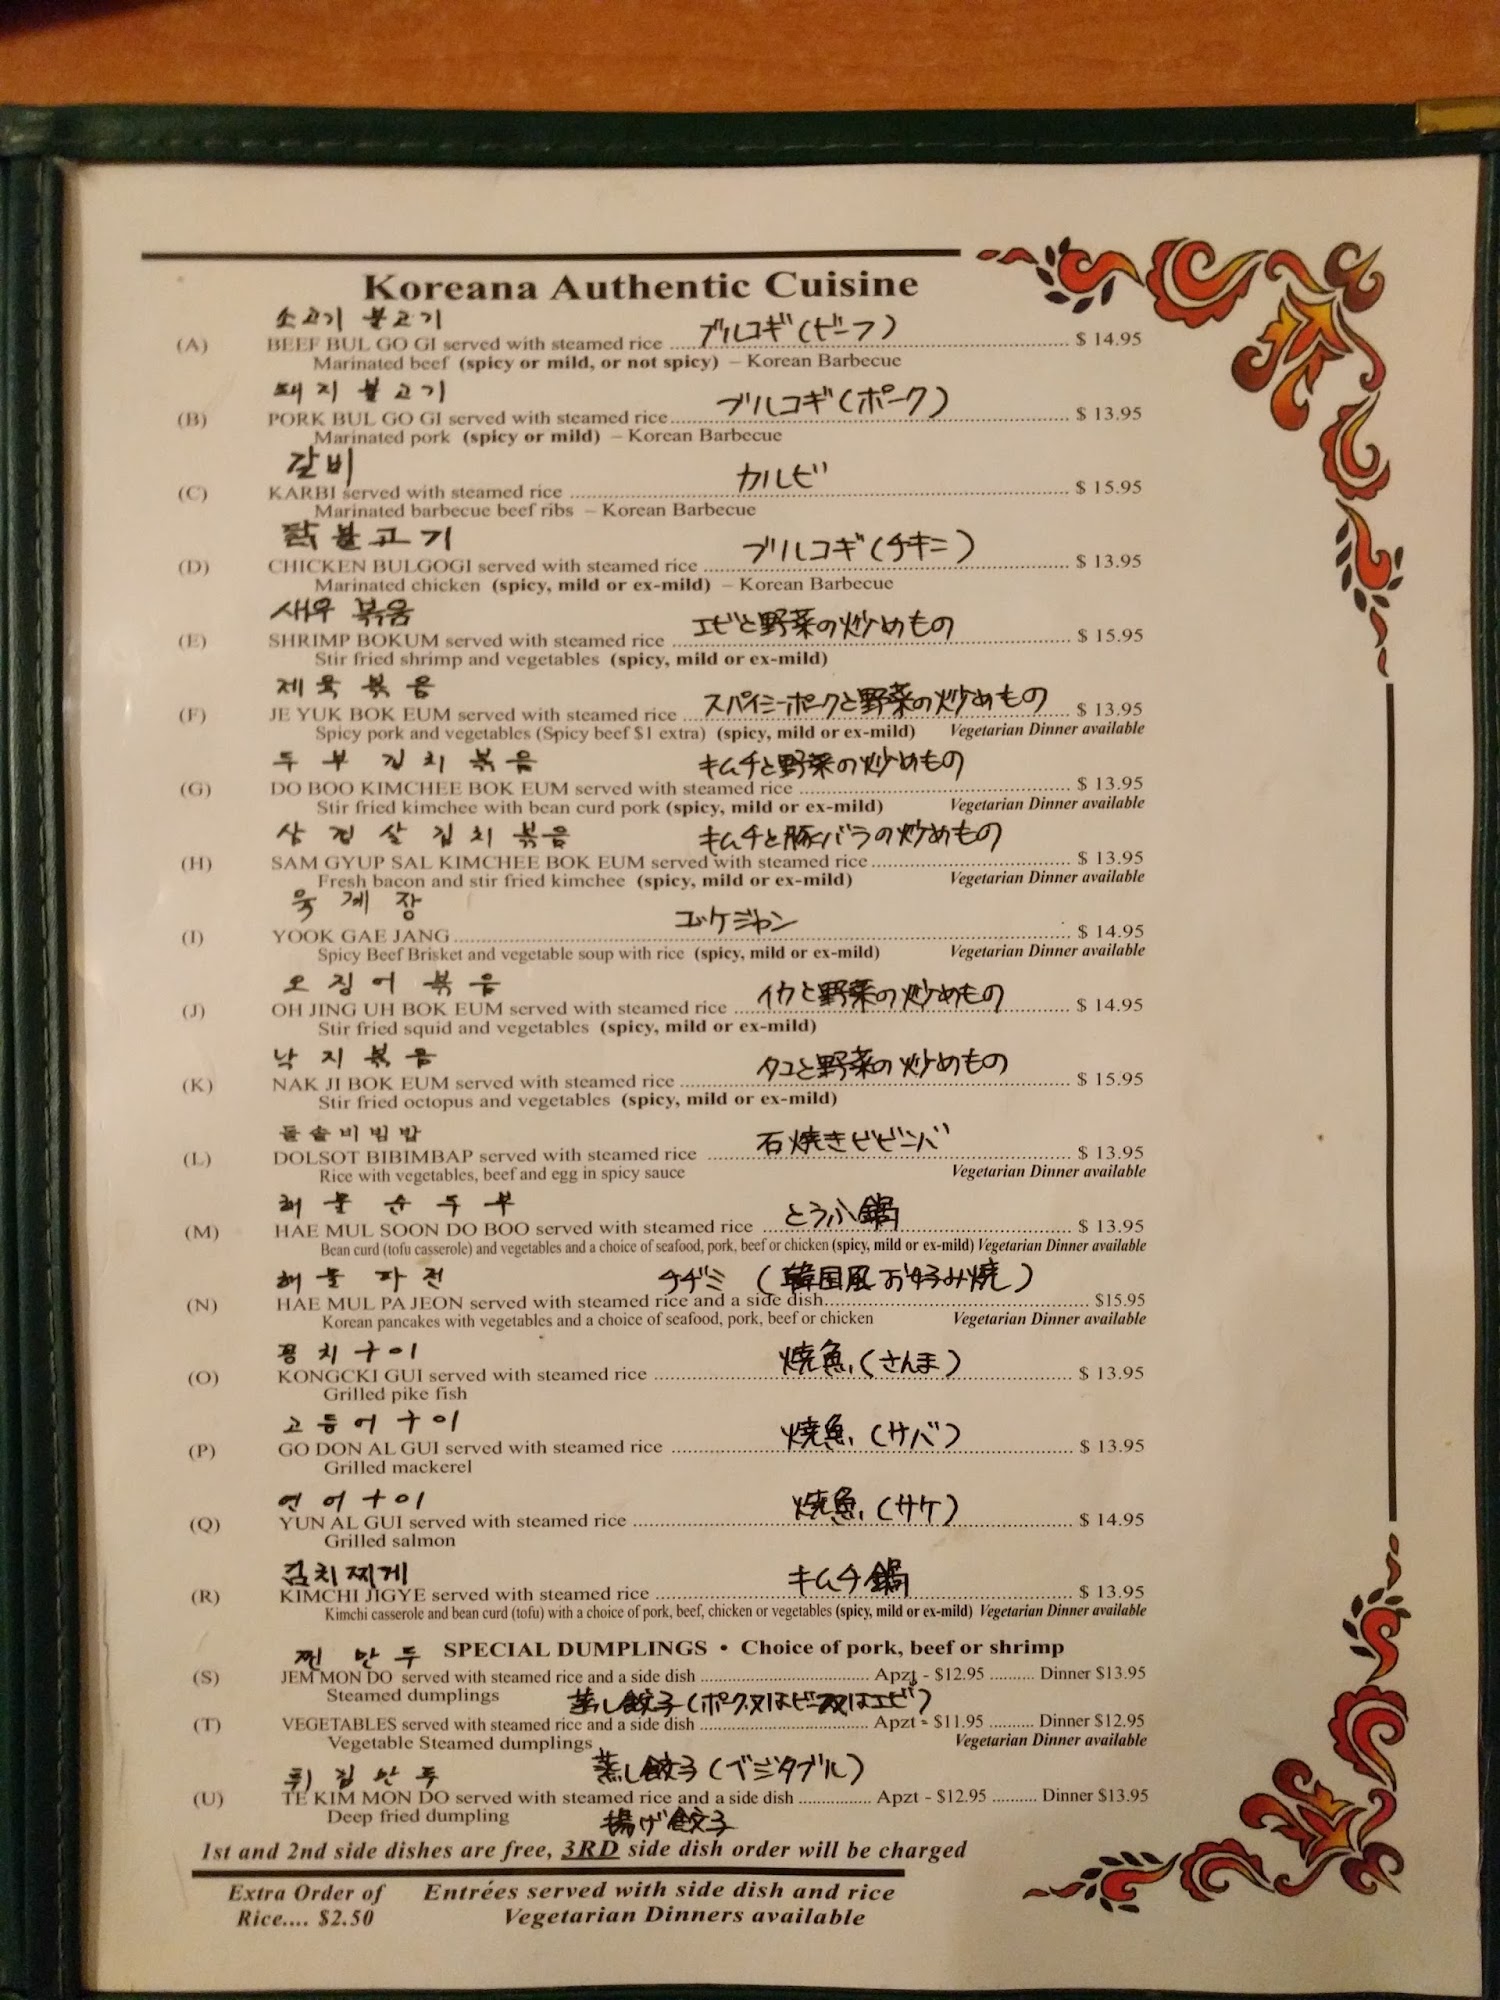 Koreana Authentic Cuisine
소고기 불고기 ブルコギ(ビーフ)
(A) BEEF BUL GO GI served with steamed rice ........ $ 14.95
Marinated beef (spicy or mild, or not spicy) – Korean Barbecue
돼지 불고기 ブルコギ(ポーク)
(B) PORK BUL GO GI served with steamed rice ........ $ 13.95
Marinated pork (spicy or mild) – Korean Barbecue
갈비 カルビ
(C) KARBI served with steamed rice ........ $ 15.95
Marinated barbecue beef ribs – Korean Barbecue
닭불고기 ブルコギ(チキン)
(D) CHICKEN BULGOGI served with steamed rice ........ $ 13.95
Marinated chicken (spicy, mild or ex-mild) – Korean Barbecue
새우 볶음 エビと野菜の炒めもの
(E) SHRIMP BOKUM served with steamed rice ........ $ 15.95
Stir fried shrimp and vegetables (spicy, mild or ex-mild)
제육볶음 スパイシーポークと野菜の炒めもの
(F) JE YUK BOK EUM served with steamed rice ........ $ 13.95
Spicy pork and vegetables (Spicy beef $1 extra) (spicy, mild or ex-mild) Vegetarian Dinner available
두부김치볶음 キムチと野菜の炒めもの
(G) DO BOO KIMCHEE BOK EUM served with steamed rice ........ $ 13.95
Stir fried kimchee with bean curd pork (spicy, mild or ex-mild) Vegetarian Dinner available
삼겹살김치볶음 キムチと豚バラの炒めもの
(H) SAM GYUP SAL KIMCHEE BOK EUM served with steamed rice ........ $ 13.95
Fresh bacon and stir fried kimchee (spicy, mild or ex-mild) Vegetarian Dinner available
육계장 ユッケジャン
(I) YOOK GAE JANG ........ $ 14.95
Spicy Beef Brisket and vegetable soup with rice (spicy, mild or ex-mild) Vegetarian Dinner available
오징어볶음 イカと野菜の炒めもの
(J) OH JING UH BOK EUM served with steamed rice ........ $ 14.95
Stir fried squid and vegetables (spicy, mild or ex-mild)
낙지볶음 タコと野菜の炒めもの
(K) NAK JI BOK EUM served with steamed rice ........ $ 15.95
Stir fried octopus and vegetables (spicy, mild or ex-mild)
돌솥비빔밥 石焼きビビンバ
(L) DOLSOT BIBIMBAP served with steamed rice ........ $ 13.95
Rice with vegetables, beef and egg in spicy sauce Vegetarian Dinner available
해물순두부 とうふ鍋
(M) HAE MUL SOON DO BOO served with steamed rice ........ $ 13.95
Bean curd (tofu casserole) and vegetables and a choice of seafood, pork, beef or chicken (spicy, mild or ex-mild) Vegetarian Dinner available
해물파전 チヂミ (韓国風お好み焼)
(N) HAE MUL PA JEON served with steamed rice and a side dish ........ $15.95
Korean pancakes with vegetables and a choice of seafood, pork, beef or chicken Vegetarian Dinner available
꽁치구이 焼魚(さんま)
(O) KONGCKI GUI served with steamed rice ........ $ 13.95
Grilled pike fish
고등어구이 焼魚(サバ)
(P) GO DON AL GUI served with steamed rice ........ $ 13.95
Grilled mackerel
연어구이 焼魚(サケ)
(Q) YUN AL GUI served with steamed rice ........ $ 14.95
Grilled salmon
김치찌게 キムチ鍋
(R) KIMCHI JIGYE served with steamed rice ........ $ 13.95
Kimchi casserole and bean curd (tofu) with a choice of pork, beef, chicken or vegetables (spicy, mild or ex-mild) Vegetarian Dinner available
찐만두 SPECIAL DUMPLINGS • Choice of pork, beef or shrimp
(S) JEM MON DO served with steamed rice and a side dish ........ Apzt - $12.95 ........ Dinner $13.95
Steamed dumplings 蒸し餃子(ポーク又はビーフ又はエビ)
(T) VEGETABLES served with steamed rice and a side dish ........ Apzt - $11.95 ........ Dinner $12.95
Vegetable Steamed dumplings Vegetarian Dinner available
튀김만두 蒸し餃子(ベジタブル)
(U) TE KIM MON DO served with steamed rice and a side dish ........ Apzt - $12.95 ........ Dinner $13.95
Deep fried dumpling 揚げ餃子
1st and 2nd side dishes are free, 3RD side dish order will be charged
Extra Order of Entrées served with side dish and rice
Rice.... $2.50 Vegetarian Dinners available